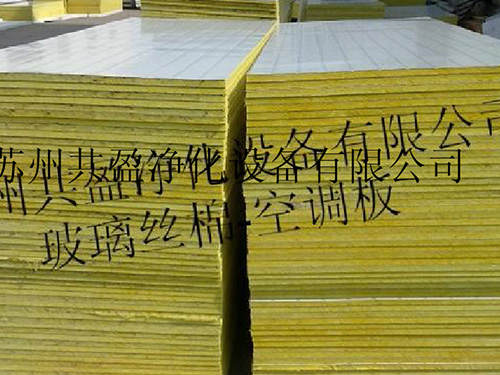 苏州共盈净化设备有限公司
州共盈净化设备有限公司
玻璃丝棉空调板